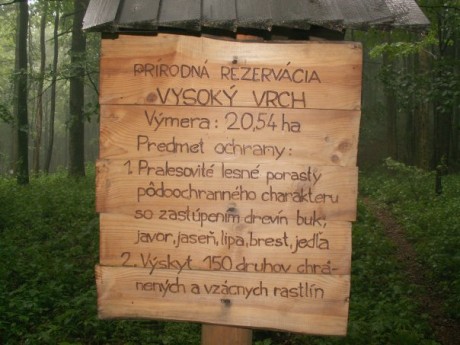 PRÍRODNÁ REZERVÁCIA
VYSOKÝ VRCH
Výmera: 20,54 ha
Predmet ochrany:
1. Pralesovité lesné porasty
pôdoochranného charakteru
so zastúpením drevín buk,
javor, jaseň, lipa, brest, jedľa
2. Výskyt 150 druhov chrá-
nených a vzácnych rastlín